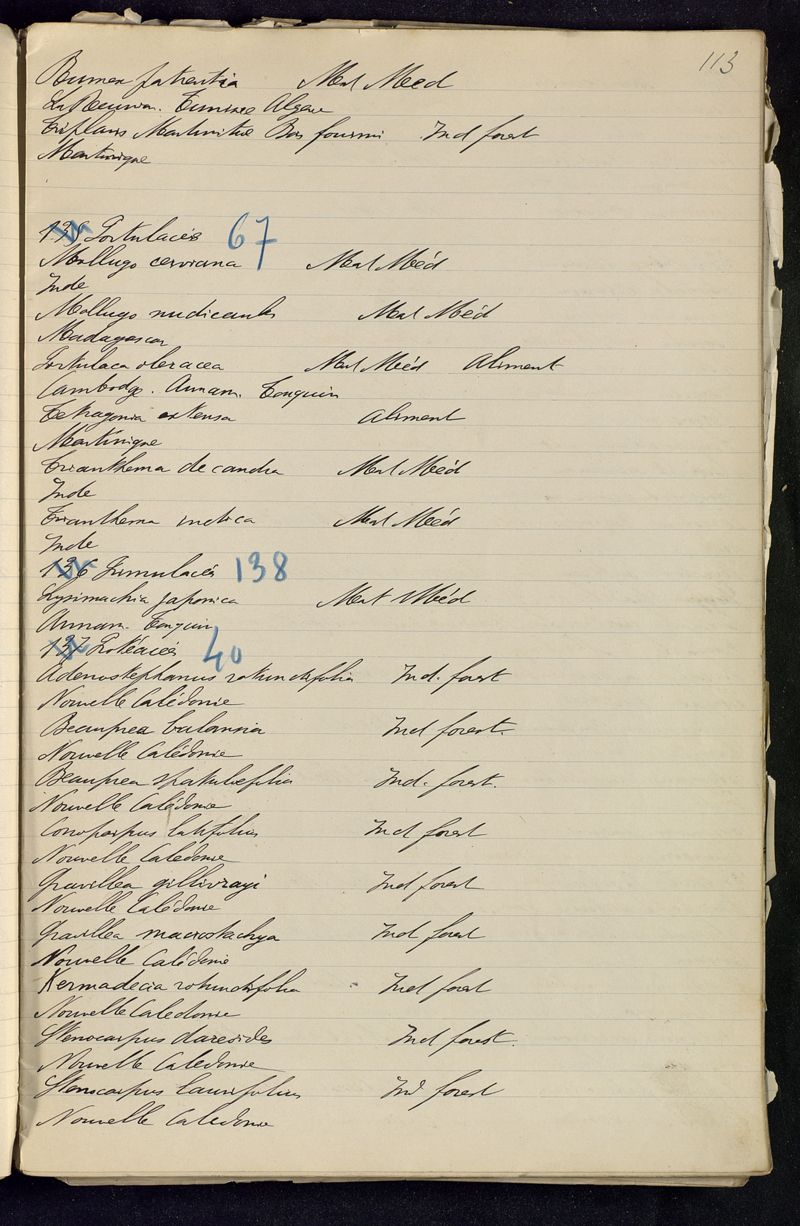 113
Rumex patientia Mat Méd
La Réunion. Tunisie Algérie
Triplaris Martinitue Bois fourmi Ind forest
Martinique
135 Portulacées 67
Mollugo cerviana Mat Méd
Inde
Mollugo nudicaulis Mat Méd
Madagascar
Portulaca oleracea Mat Méd Aliment
Cambodge. Annam. Tonquin
Tetragonia extensa Aliment
Martinique
Trianthema decandra Mat Méd
Inde
Trianthema indica Mat Méd
Inde
136 Primulacés 138
Lysimachia japonica Mat Méd
Annam. Tonquin
137 Protéacés 40
Adenostephanus rotundifolia Ind. forest
Nouvelle Calédonie
Beauprea balansia Ind forest.
Nouvelle Calédonie
Beauprea spatulaefolia Ind. forest.
Nouvelle Calédonie
Conospurpus latifolius Ind forest
Nouvelle Calédonie
Gravillea gillivrayi Ind forest
Nouvelle Calédonie
Gravillea macrostachya Ind forest
Nouvelle Calédonie
Kermadecia rotundifolia Ind forest
Nouvelle Caledonie
Stenocarpus dareoides Ind forest.
Nouvelle Caledonie
Stenocarpus laurifolius Ind forest
Nouvelle Caledonie